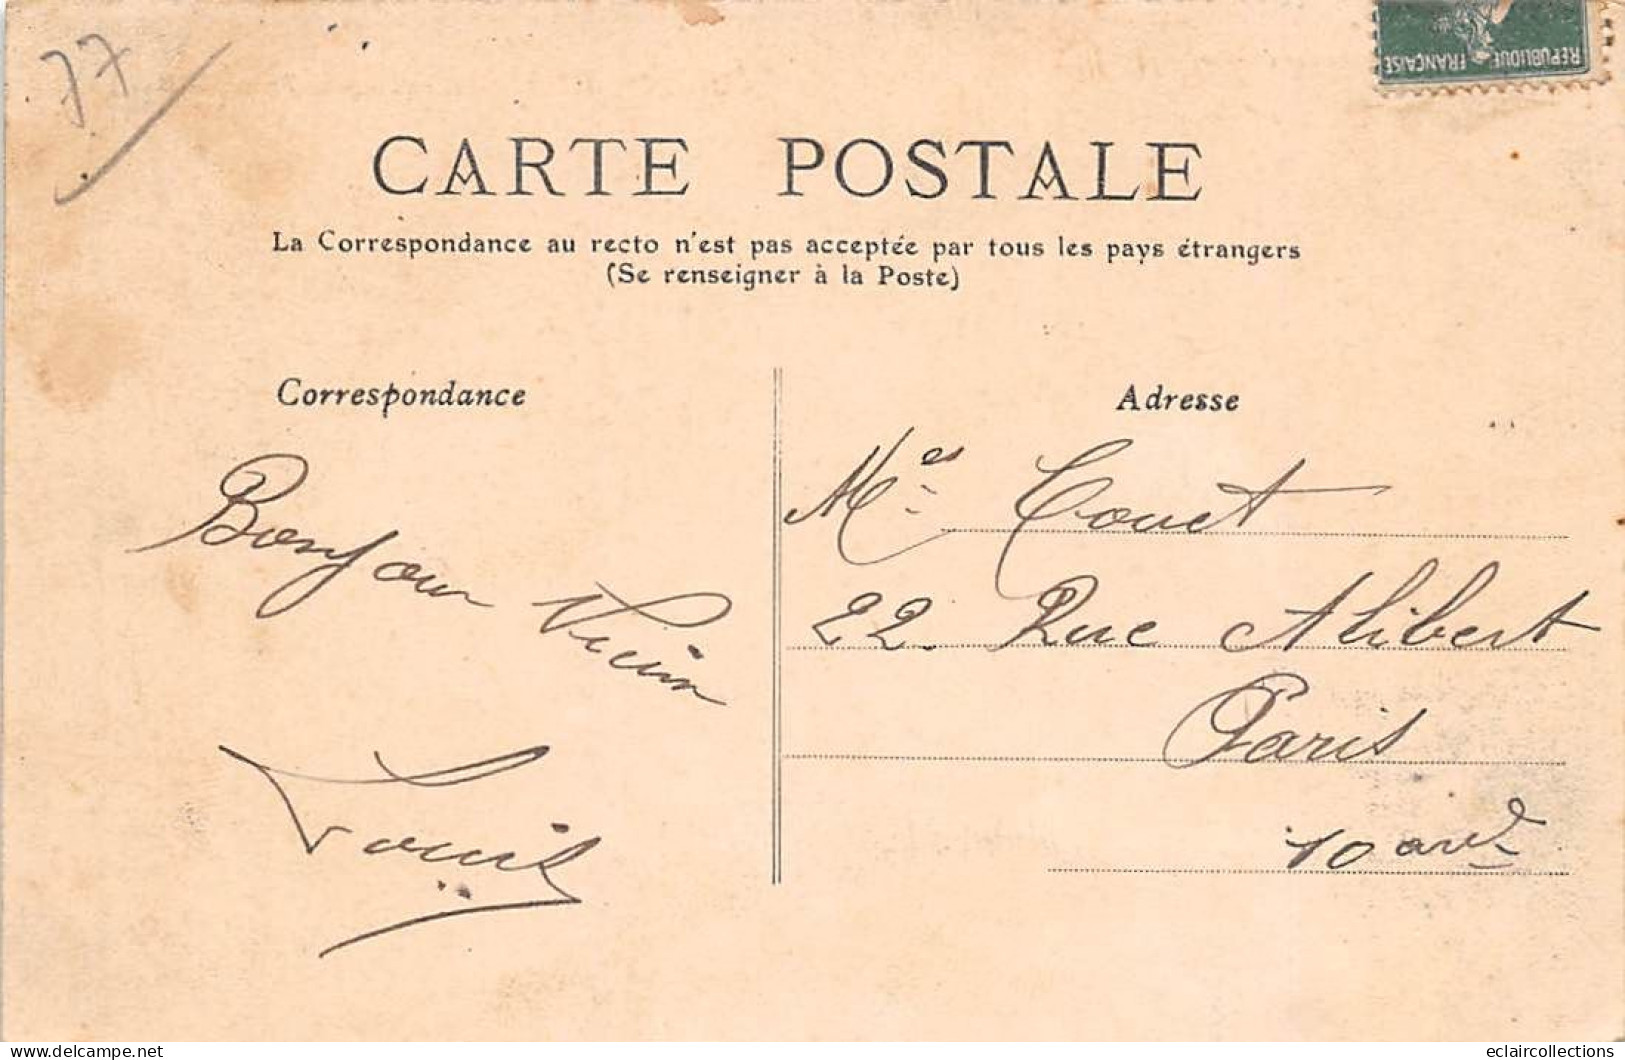 77
RÉPUBLIQUE FRANÇAISE
CARTE POSTALE
La Correspondance au recto n'est pas acceptée par tous les pays étrangers
(Se renseigner à la Poste)
Correspondance
Bonjour
Louis
Adresse
Couet
22 Rue Alibert
Paris
10
delcampe.net
eclaircollections